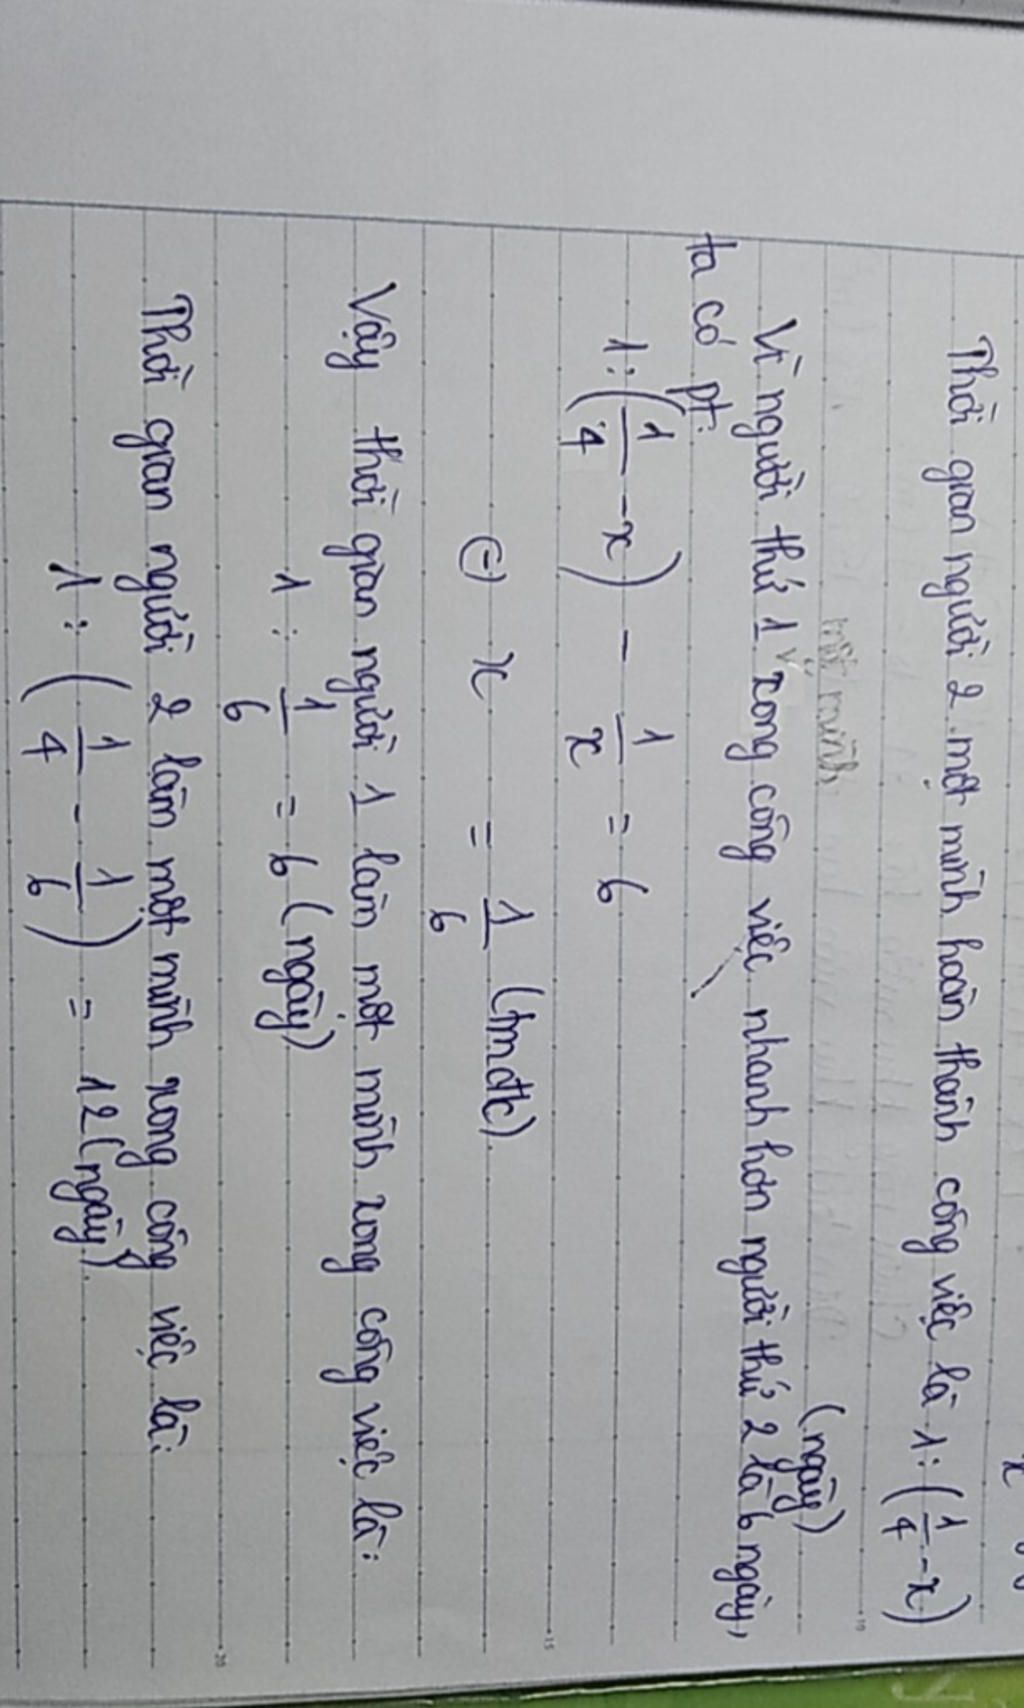 x
Thời gian người 2 một mình hoàn thành công việc là 1 : (1/4 - x)
(ngày)
một mình
Vì người thứ 1 ˅ xong công việc nhanh hơn người thứ 2 là 6 ngày,
ta có pt:
1 : (1/4 - x) - 1/x = 6
(-) x = 1/6 (tmđk).
Vậy thời gian người 1 làm một mình xong công việc là:
1 : 1/6 = 6 (ngày)
Thời gian người 2 làm một mình xong công việc là:
1 : (1/4 - 1/6) = 12 (ngày).